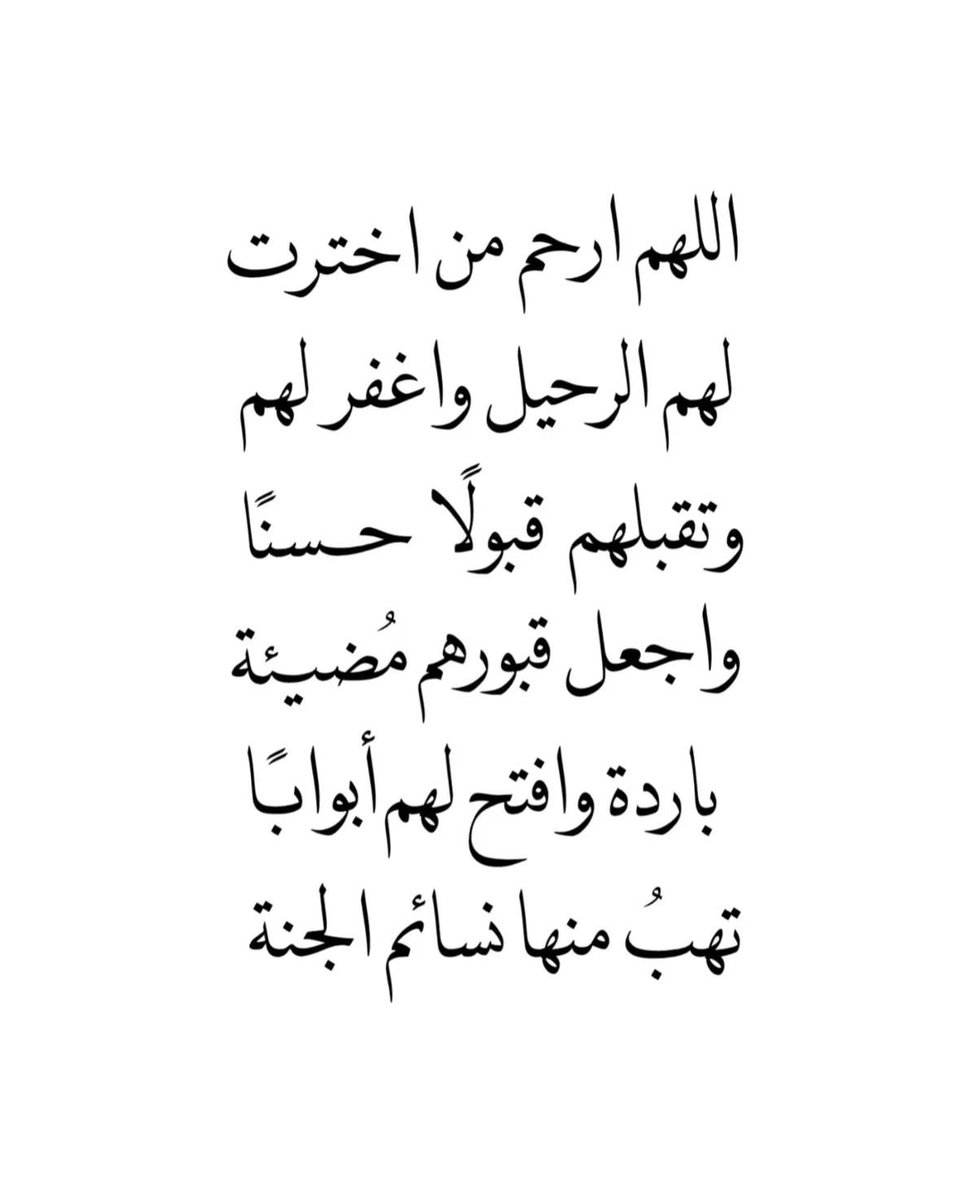 اللهم ارحم من اخترت
لهم الرحيل واغفر لهم
وتقبلهم قبولًا حسنًا
واجعل قبورهم مُضيئة
باردة وافتح لهم أبوابًا
تهبُ منها نسائم الجنة